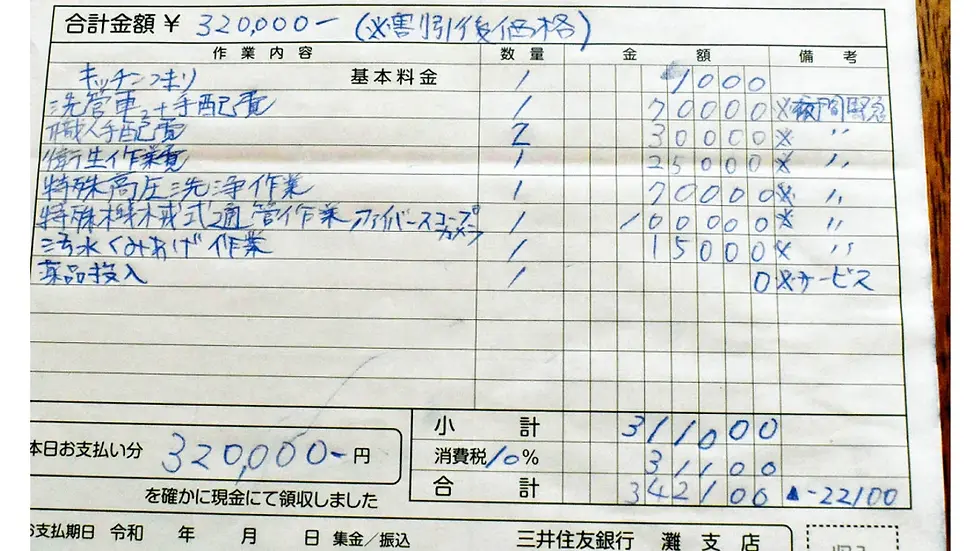 合計金額 ¥ 320,000- (※割引後価格)
作業内容 数量 金額 備考
キッチンつまり 基本料金 1 1000
洗管車 手配費 1 70000 ※夜間緊急
職人手配費 2 30000 ※ 〃
衛生作業費 1 25000 ※ 〃
特殊高圧洗浄作業 1 70000 ※ 〃
特殊機械式通管作業 ファイバースコープカメラ 1 100000 ※ 〃
汚水くみあげ作業 1 15000 ※ 〃
薬品投入 1 0 ※サービス
小計 311000
本日お支払い分 320,000-円
消費税10% 31100
合計 342100 ▲-22100
を確かに現金にて領収しました
お支払期日 令和 年 月 日 集金/振込
三井住友銀行 灘支店